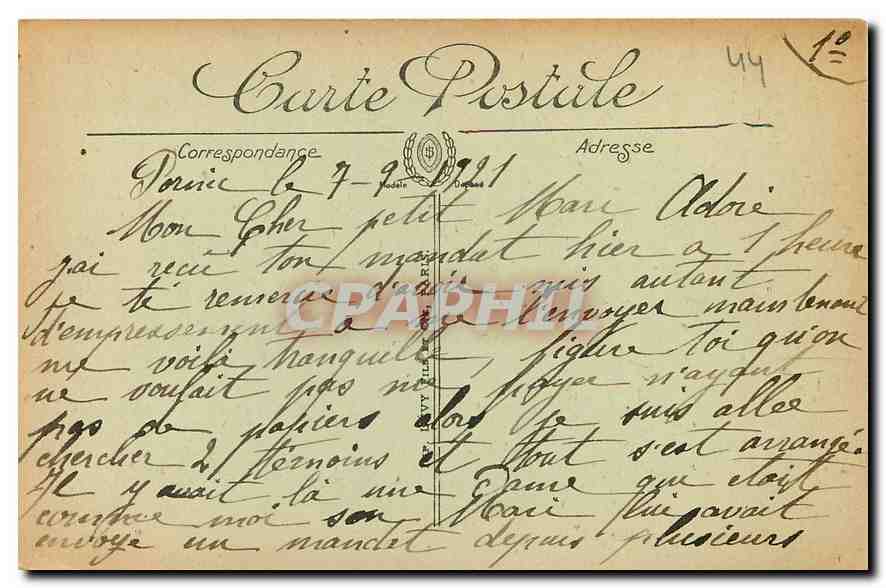 44
1º
Carte Postale
Correspondance
Adresse
Modèle Déposé
Pornic le 7-9-1921
Mon Cher petit Mari Adoré
j'ai reçu ton mandat hier a 1 heure
je te remercie d'avoir mis autant
d'empressement a me l'envoyer maintenant
me voilà tranquille, figure toi qu'on
ne voulait pas me payer n'ayant
pas de papiers alors je suis allée
chercher 2 témoins et tout s'est arrangé.
Il y avait là une Dame qui etait
comme moi son Mari lui avait
envoye un mandat depuis plusieurs
LÉVY FILS ET Cie, PARIS
CPAPHIL